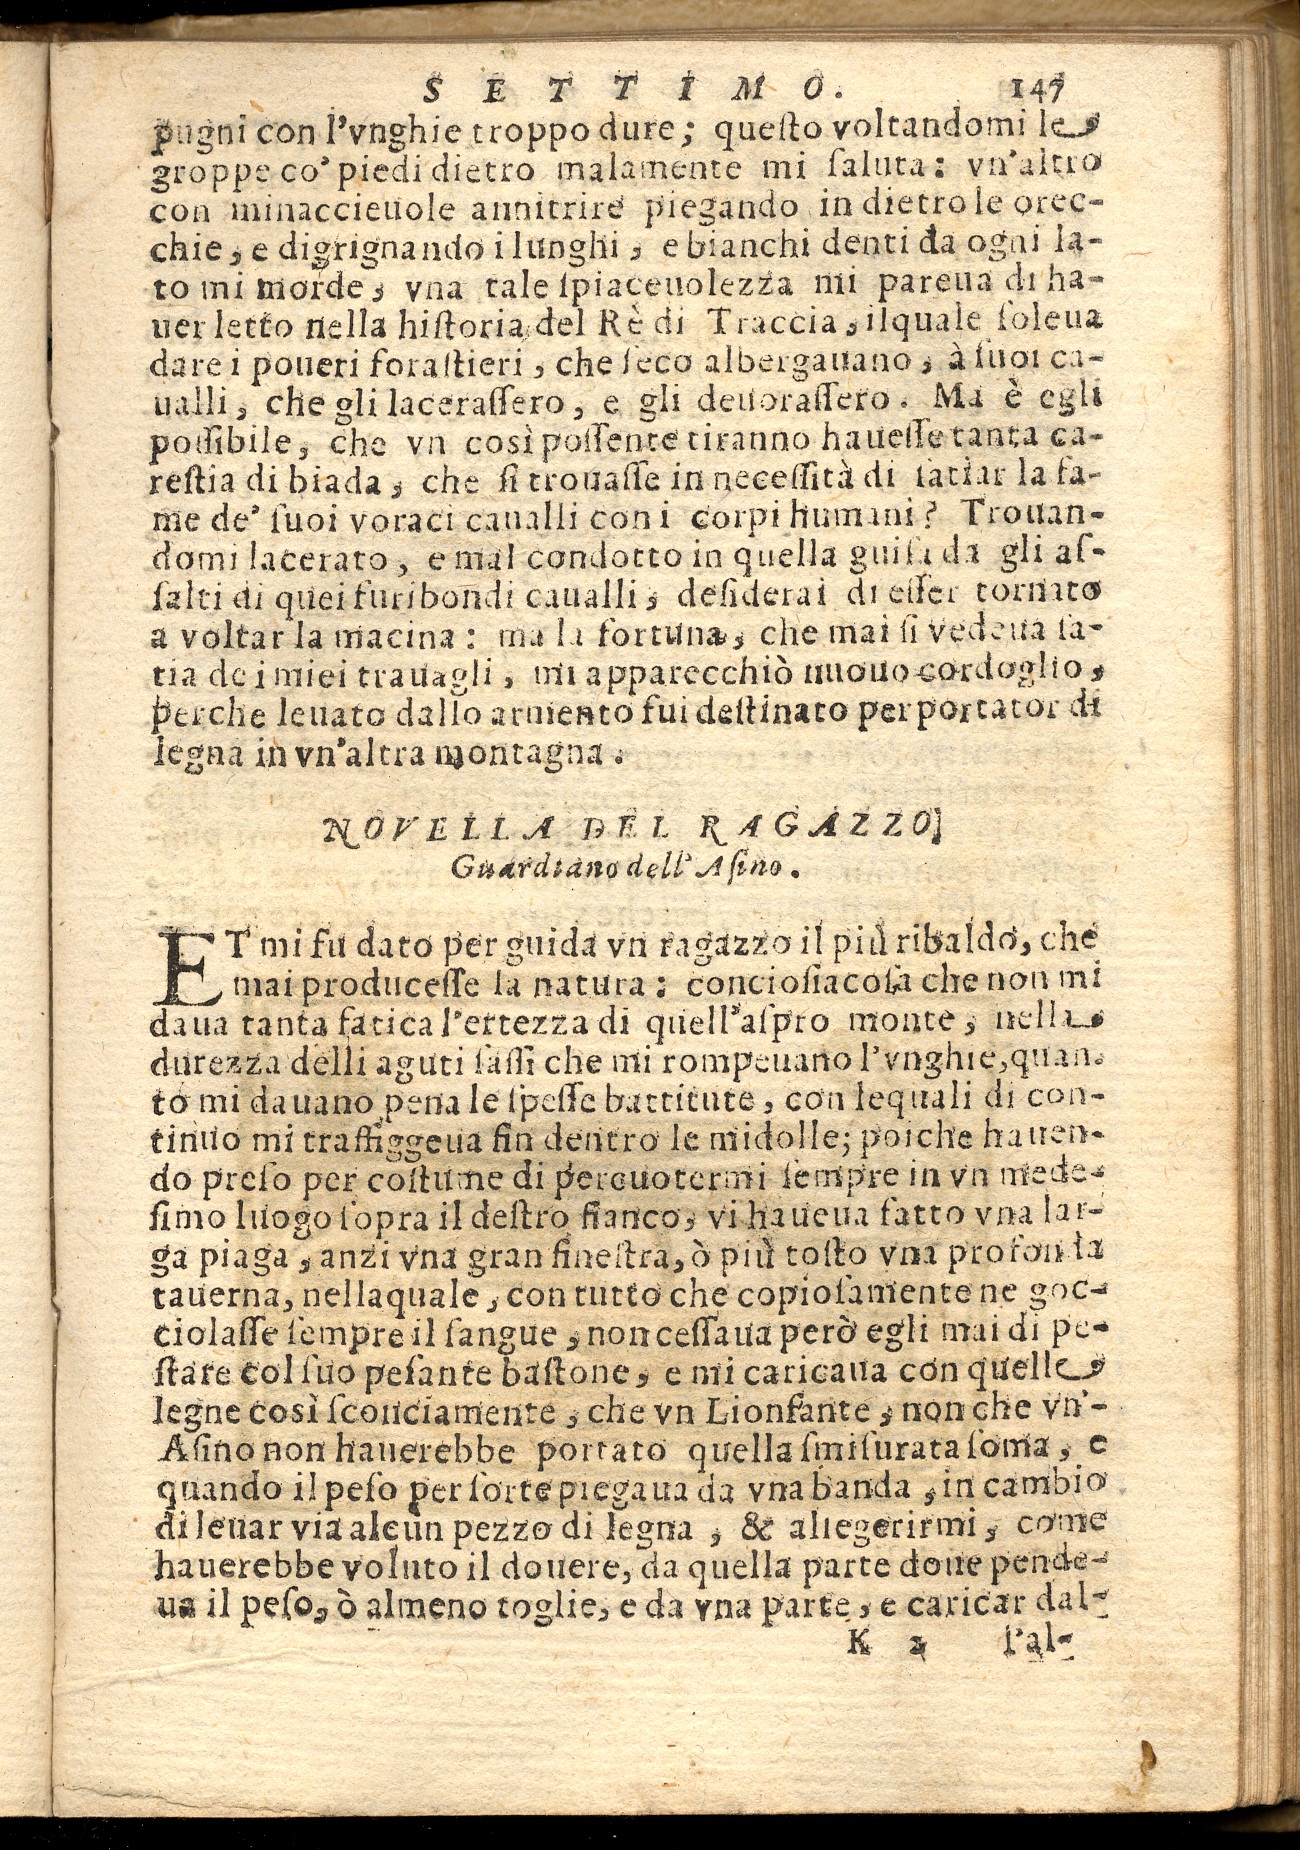 SETTIMO. 147
pugni con l'vnghie troppo dure; queſto voltandomi le
groppe co' piedi dietro malamente mi ſaluta: vn'altro
con minaccieuole annitrire piegando in dietro le orec-
chie, e digrignando i lunghi, e bianchi denti da ogni la-
to mi morde, vna tale ſpiaceuolezza mi pareua di ha-
uer letto nella hiſtoria del Rè di Traccia, ilquale ſoleua
dare i poueri foraſtieri, che ſeco albergauano, à ſuoi ca-
ualli, che gli laceraſſero, e gli deuoraſſero. Ma è egli
poſſibile, che vn così poſſente tiranno haueſſe tanta ca-
reſtia di biada, che ſi trouaſſe in neceſſità di ſatiar la fa-
me de' ſuoi voraci caualli con i corpi humani? Trouan-
domi lacerato, e mal condotto in quella guiſa da gli aſ-
ſalti di quei furibondi caualli, deſiderai di eſſer tornato
a voltar la macina: ma la fortuna, che mai ſi vedeua ſa-
tia de i miei trauagli, mi apparecchiò nuouo cordoglio,
perche leuato dallo armento fui deſtinato per portator di
legna in vn'altra montagna.
NOVELLA DEL RAGAZZO
Guardiano dell' Aſino.
ET mi fu dato per guida vn ragazzo il più ribaldo, che
mai produceſſe la natura: concioſiacoſa che non mi
daua tanta fatica l'ertezza di quell'aſpro monte, nella
durezza delli aguti ſaſſi che mi rompeuano l'vnghie, quan-
to mi dauano pena le ſpeſſe battitute, con lequali di con-
tinuo mi traffiggeua fin dentro le midolle; poiche hauen-
do preſo per coſtume di percuotermi ſempre in vn mede-
ſimo luogo ſopra il deſtro fianco, vi haueua fatto vna lar-
ga piaga, anzi vna gran fineſtra, ò più toſto vna profonda
tauerna, nellaquale, con tutto che copioſamente ne goc-
ciolaſſe ſempre il ſangue, non ceſſaua però egli mai di pe-
ſtare col ſuo peſante baſtone, e mi caricaua con quelle
legne così ſconciamente, che vn Lionfante, non che vn'-
Aſino non hauerebbe portato quella ſmiſurata ſoma, e
quando il peſo per ſorte piegaua da vna banda, in cambio
di leuar via alcun pezzo di legna, & allegerirmi, come
hauerebbe voluto il douere, da quella parte doue pende-
ua il peſo, ò almeno toglie, e da vna parte, e caricar dal-
K 2 l'al-